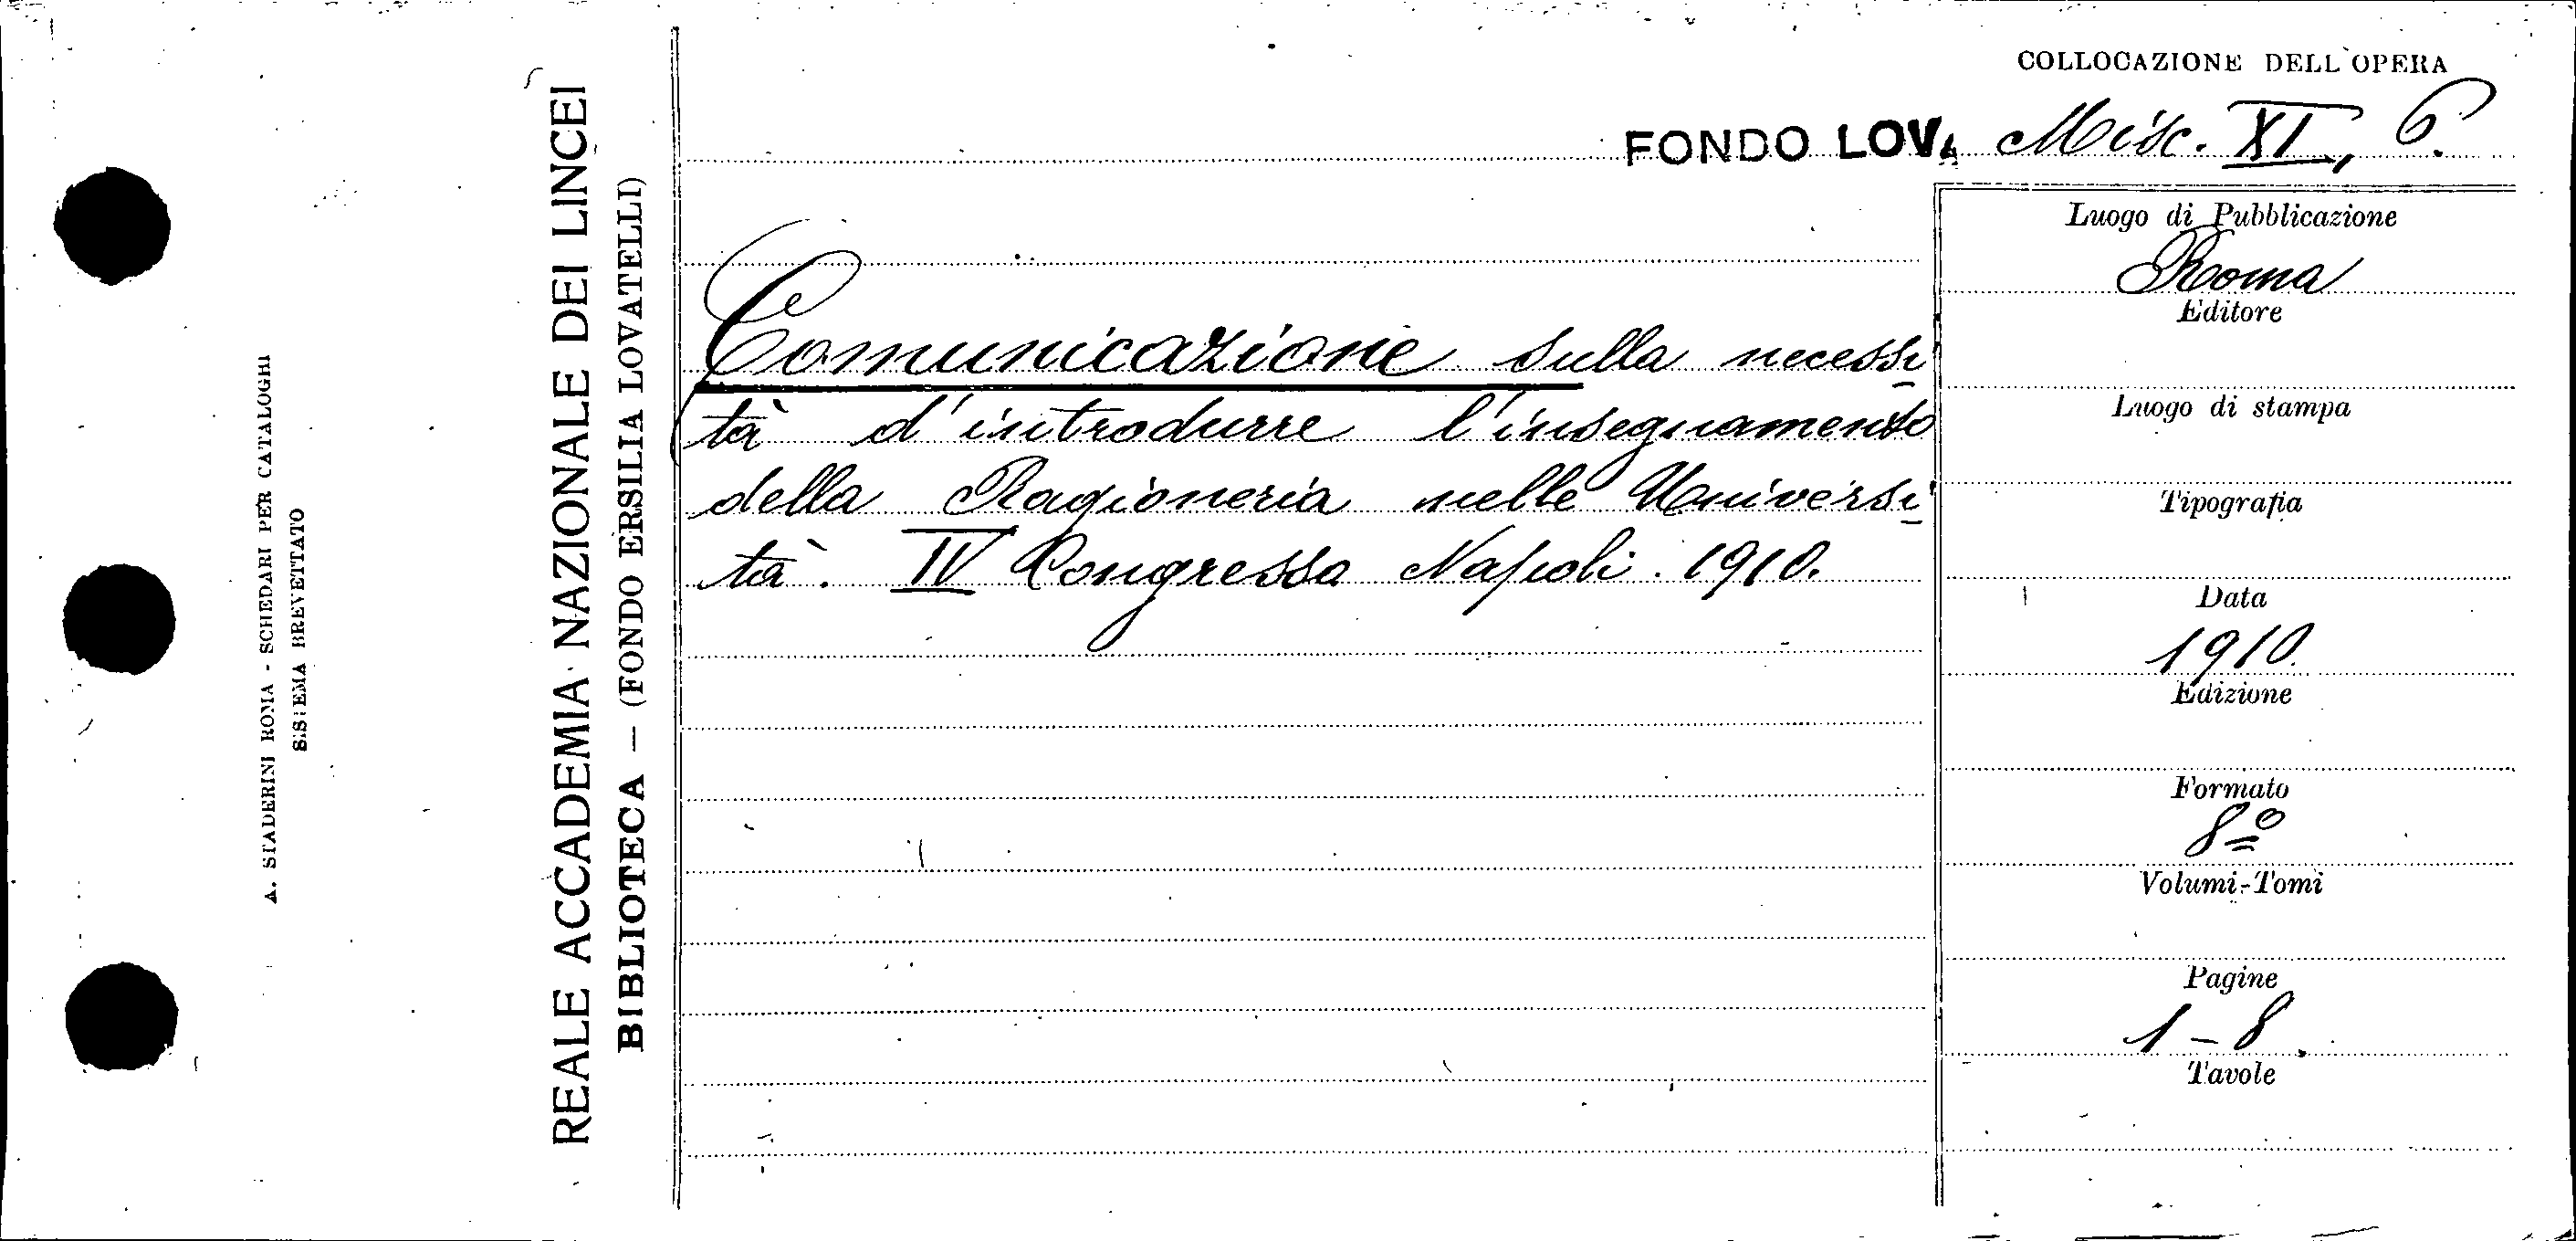 COLLOCAZIONE DELL'OPERA
FONDO LOVA Misc. XI, 6.
Comunicazione sulla necessi
tà d'introdurre l'insegnamento
della Ragioneria nelle Universi
tà. IV Congresso Napoli. 1910.
Luogo di Pubblicazione
Roma
Editore
Luogo di stampa
Tipografia
Data
1910.
Edizione
Formato
8º
Volumi-Tomi
Pagine
1-8.
Tavole
REALE ACCADEMIA NAZIONALE DEI LINCEI
BIBLIOTECA — (FONDO ERSILIA LOVATELLI)
A. STADERINI ROMA - SCHEDARI PER CATALOGHI
SISTEMA BREVETTATO